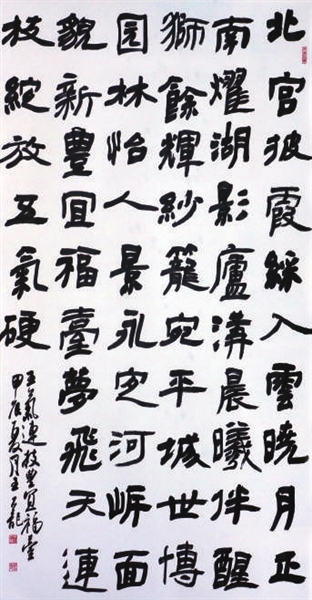 北宫披霞綵入雲曉月正
南燿湖影廬溝晨曦伴醒
獅餘輝紗籠宛平城世博
园林怡人景永定河岍面
貌新豐宜福臺夢飛天連
枝綻放五氣硬
五氣連枝豐宜福臺
甲辰夏月王龍